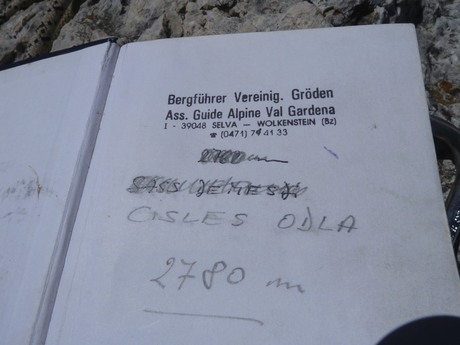 Bergführer Vereinig. Gröden
Ass. Guide Alpine Val Gardena
I - 39048 SELVA - WOLKENSTEIN (Bz)
☎ (0471) 74 41 33
CISLES ODLA
2780 m